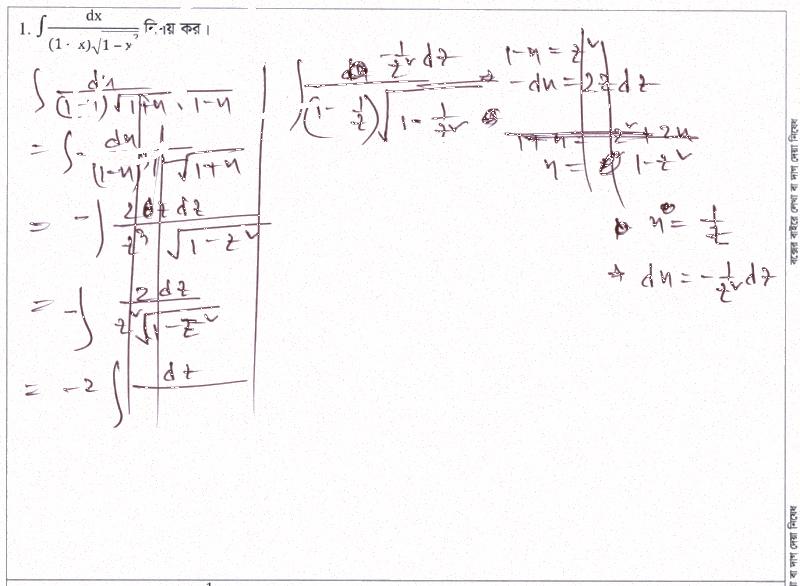 1. ∫ dx / (1 - x)√1 − x² নির্ণয় কর।
∫ dx / (1-x)√1+x · √1-x
= ∫ dx / (1-x) √1+x
= -∫ 2z dz / z³ √1-z²
= -∫ 2 dz / z²√1-z²
= -2 ∫ dz
∫ -1/z² dz / (1 - 1/z)√1 - 1/z²
1-x = z²
-dx = 2z dz
x = 1-z²
x = 1/z
⇒ dx = -1/z² dz
বক্সের বাইরে লেখা বা দাগ দেয়া নিষেধ
বা দাগ দেয়া নিষেধ